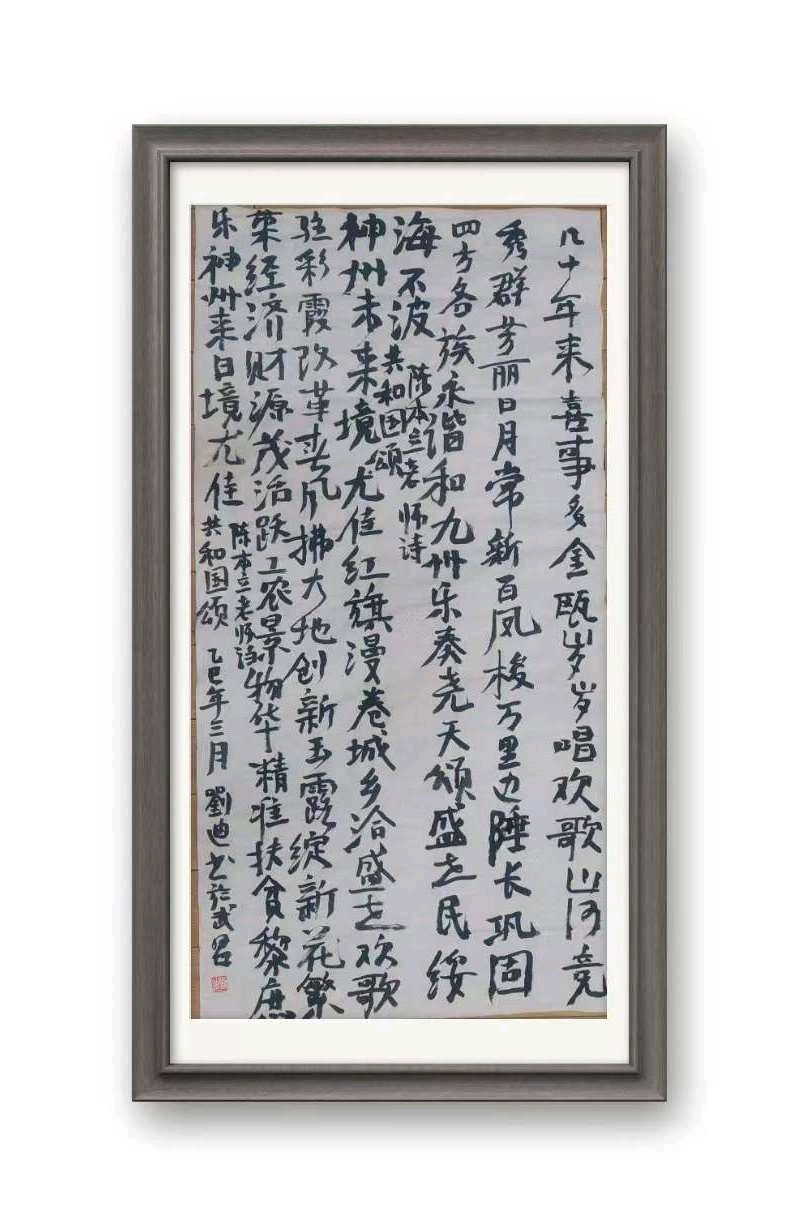 几十年来喜事多金瓯岁岁唱欢歌山河竞
秀群芳丽日月常新百凤梭万里边陲长巩固
四方各族永谐和九州乐奏尧天颂盛世民绥
海不波
陈本立老师诗
共和国颂
神州未来境尤佳红旗漫卷城乡洽盛世欢歌
驻彩霞改革春风拂大地创新玉露绽新花繁
荣经济财源茂活跃工农景物华精准扶贫黎庶
乐神州来日境尤佳
陈本立老师诗
共和国颂
乙巳年三月劉迪书於武昌